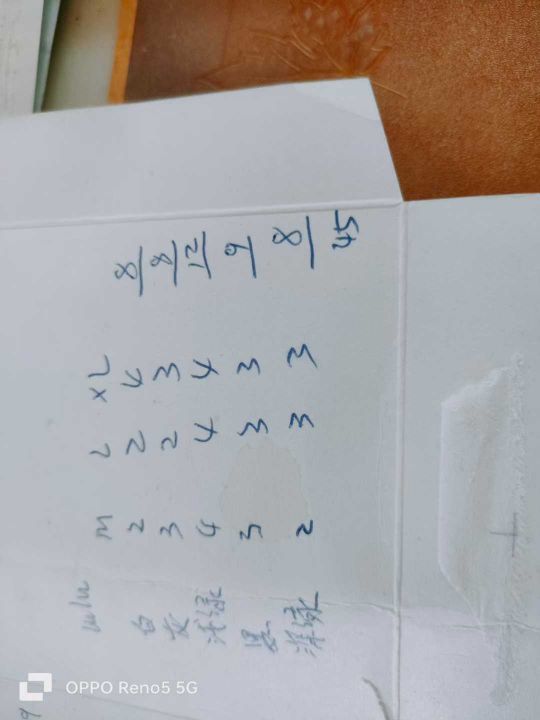 lulu M L XL
白 2 2 4 8
灰 3 2 3 8
浅绿 4 4 4 12
黑 3 3 3 9
深绿 2 3 3 8
45
OPPO Reno5 5G